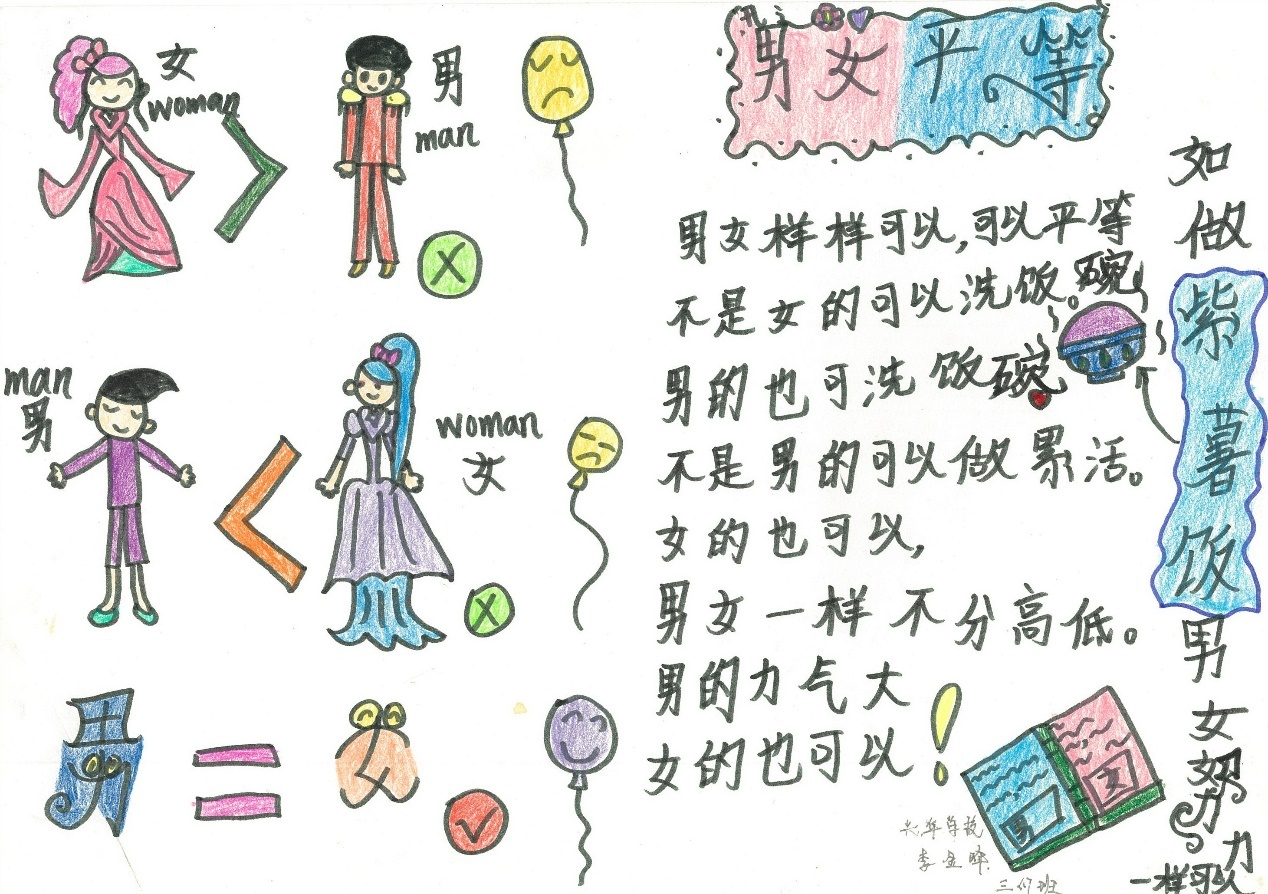 女
woman
男
man
man
男
woman
女
男
女
男女平等
男女样样可以,可以平等
不是女的可以洗饭碗。
男的也可洗饭碗
不是男的可以做累活。
女的也可以,
男女一样不分高低。
男的力气大
女的也可以!
如做紫薯饭男女努力一样可以
男
女